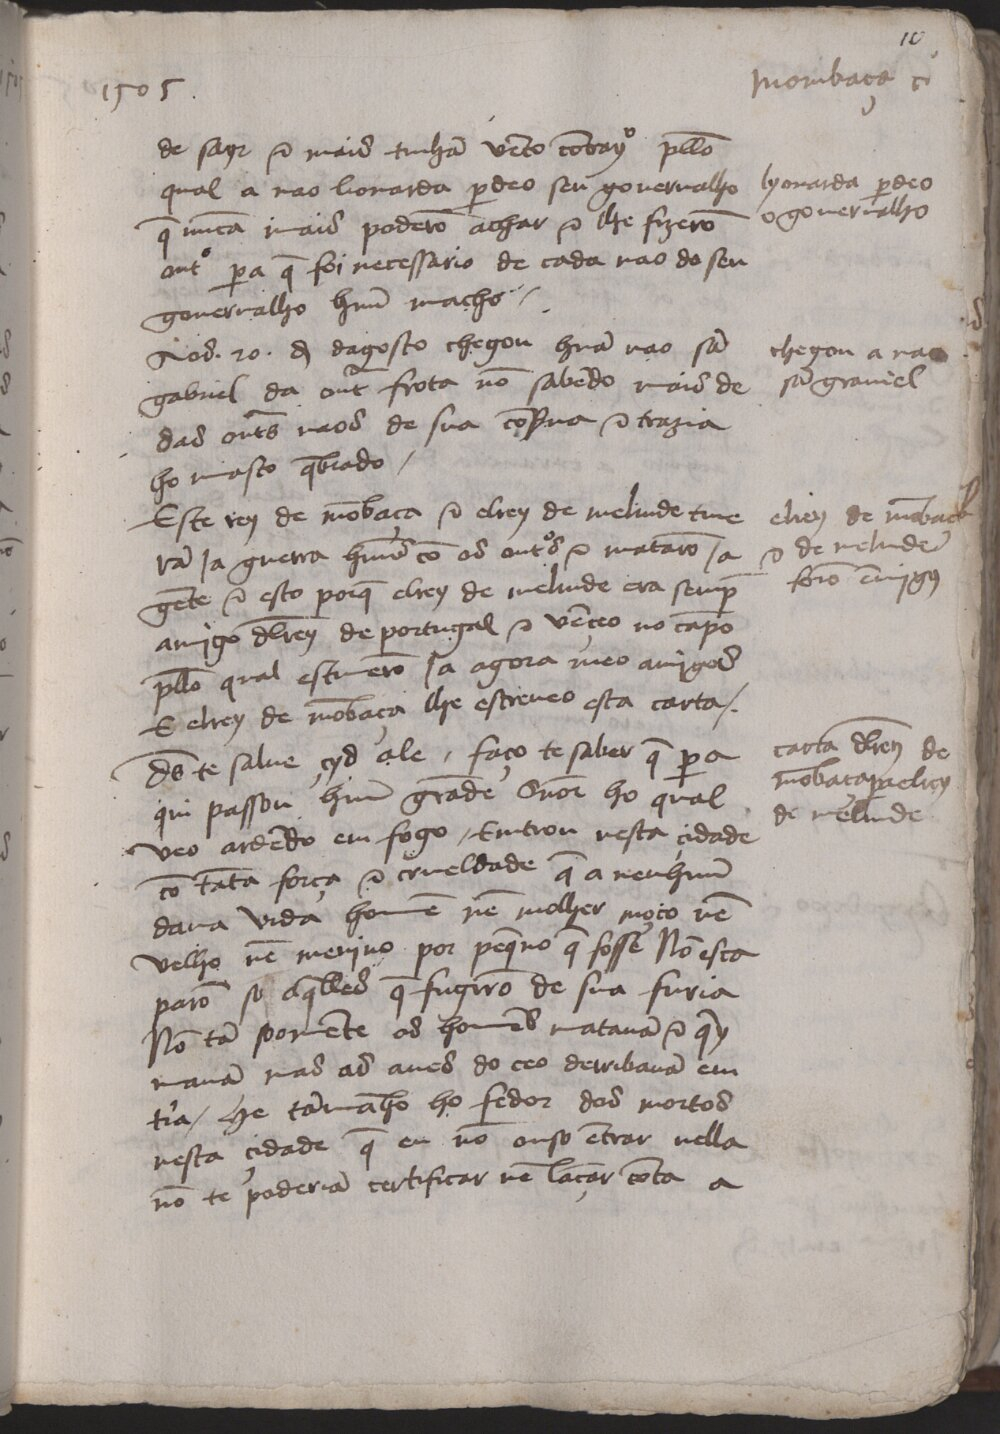 10
1505.
Mombaça
de sayr & mais tinhã vẽto cõtrayº pllo
qual a nao lionarda pdeo seu governalho
q̃ nũca mais poderõ achar & lhe fizerõ
outº pa q̃ foi necessario de cada nao do seu
governalho hũ macho /.
lyonarda pdeo
o governalho
Aos .20. dagosto chegou hũa nao sã
gabriel da outª frota nõ sabẽdo mais de
das outs naos de sua cõpãnia & trazia
ho masto q̃brado /
chegou a nao
sã graviel
Este rey de mõbaça & elrey de melinde tive
rã ja guerra hũs cõ os outºs & matarõ ja
gẽte & esto porq̃ elrey de melinde era semp̃
amigo dlrey de portugal & vẽceo no cãpo
pllo qual estiverõ ja agora meo amigos
E elrey de mõbaça lhe escreveo esta carta /.
elrey de mõbaca
& de melinde
forõ ẽmigos
Ds te salve çyd ale , faço te saber q̃ p a
qui passou hũ grãde Sñor ho qual
veo ardẽdo em fogo / Emtrou nesta çidade
cõ tãta força & crueldade q̃ a nenhũ
dava vida homẽ nẽ molher moço nẽ
velho nẽ menino por peq̃no q̃ fosse Nõ esca
parõ so aq̃lles q̃ fugirõ de sua furia
Nõ tã soomẽte os homẽs matavã & q̃y
mavã mas as aves do ceo derribavã em
trã / He tãmanho ho fedor dos mortos
nesta çidade q̃ eu nõ ouso ẽtrar nella
nõ te poderiã certificar nẽ lãçar cõta a
carta dlrey de
mõbaca pa elrey
de melinde